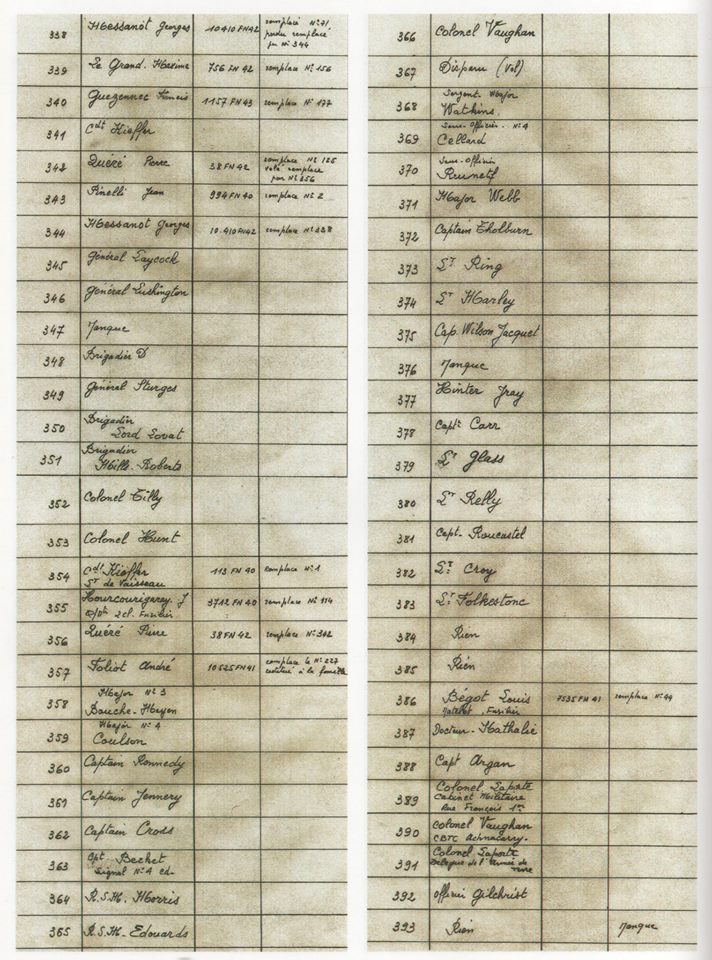 338 Messanot Georges 10410 FN42 remplacé N°71, perdu remplacé par N° 344
339 Le Grand. Maxime 756 FN 42 remplace N° 156
340 Guezennec Francis 1157 FN43 remplace N° 177
341 Cdt Kieffer
342 Quéré Pierre 38 FN 42 remplace N° 125 volé remplace par N° 356
343 Pinelli Jean 994 FN 40 remplace N° 2
344 Messanot Georges 10.410 FN42 remplace N° 338
345 Général Laycock
346 Général Lushington
347 Manque
348 Brigadier D
349 Général Sturges
350 Brigadier Lord Lovat
351 Brigadier Mills-Roberts
352 Colonel Tilly
353 Colonel Hunt
354 Cdt Kieffer LT de Vaisseau 113 FN 40 remplace N° 1
355 Hourcourigaray. J 2 cl. Fusilier 3712 FN 40 remplace N° 114
356 Quéré Pierre 38 FN 42 remplace N° 342
357 Foliot André 10525 FN41 remplace le N° 227 restitué à la famille
358 Major N° 3 Bouche-Myen
359 Major N° 4 Coulson
360 Captain Kennedy
361 Captain Jennery
362 Captain Cross
363 Cpt Becket Signal N° 4 cd.
364 R.S.M. Morris
365 R.S.M. Edouards
366 Colonel Vaughan
367 Disparu (Vol)
368 Sergent. Major Watkins.
369 Sous-Officier. N° 4 Cellard
370 Sous-Officier Brunetf
371 Major Webb
372 Captain Tholburn
373 LT Ring
374 LT Harley
375 Cap. Wilson Jacquet
376 Manque
377 Hinter Jray
378 Capt: Carr
379 LT Glass
380 LT Relly
381 Capt. Roucastel
382 LT: Croy
383 LT: Folkestone
384 Rien
385 Rien
386 Bégot Louis Matelot. Fusilier 7535 FN 41 remplace N° 44
387 Docteur. Nathalie
388 Capt Argan
389 Colonel Laporte Cabinet Militaire Rue François 1er
390 Colonel Vaughan CBTC Achnacarry.
391 Colonel Laporte Délégué de l'Armée de Terre
392 Officier Gilchrist
393 Rien Manque